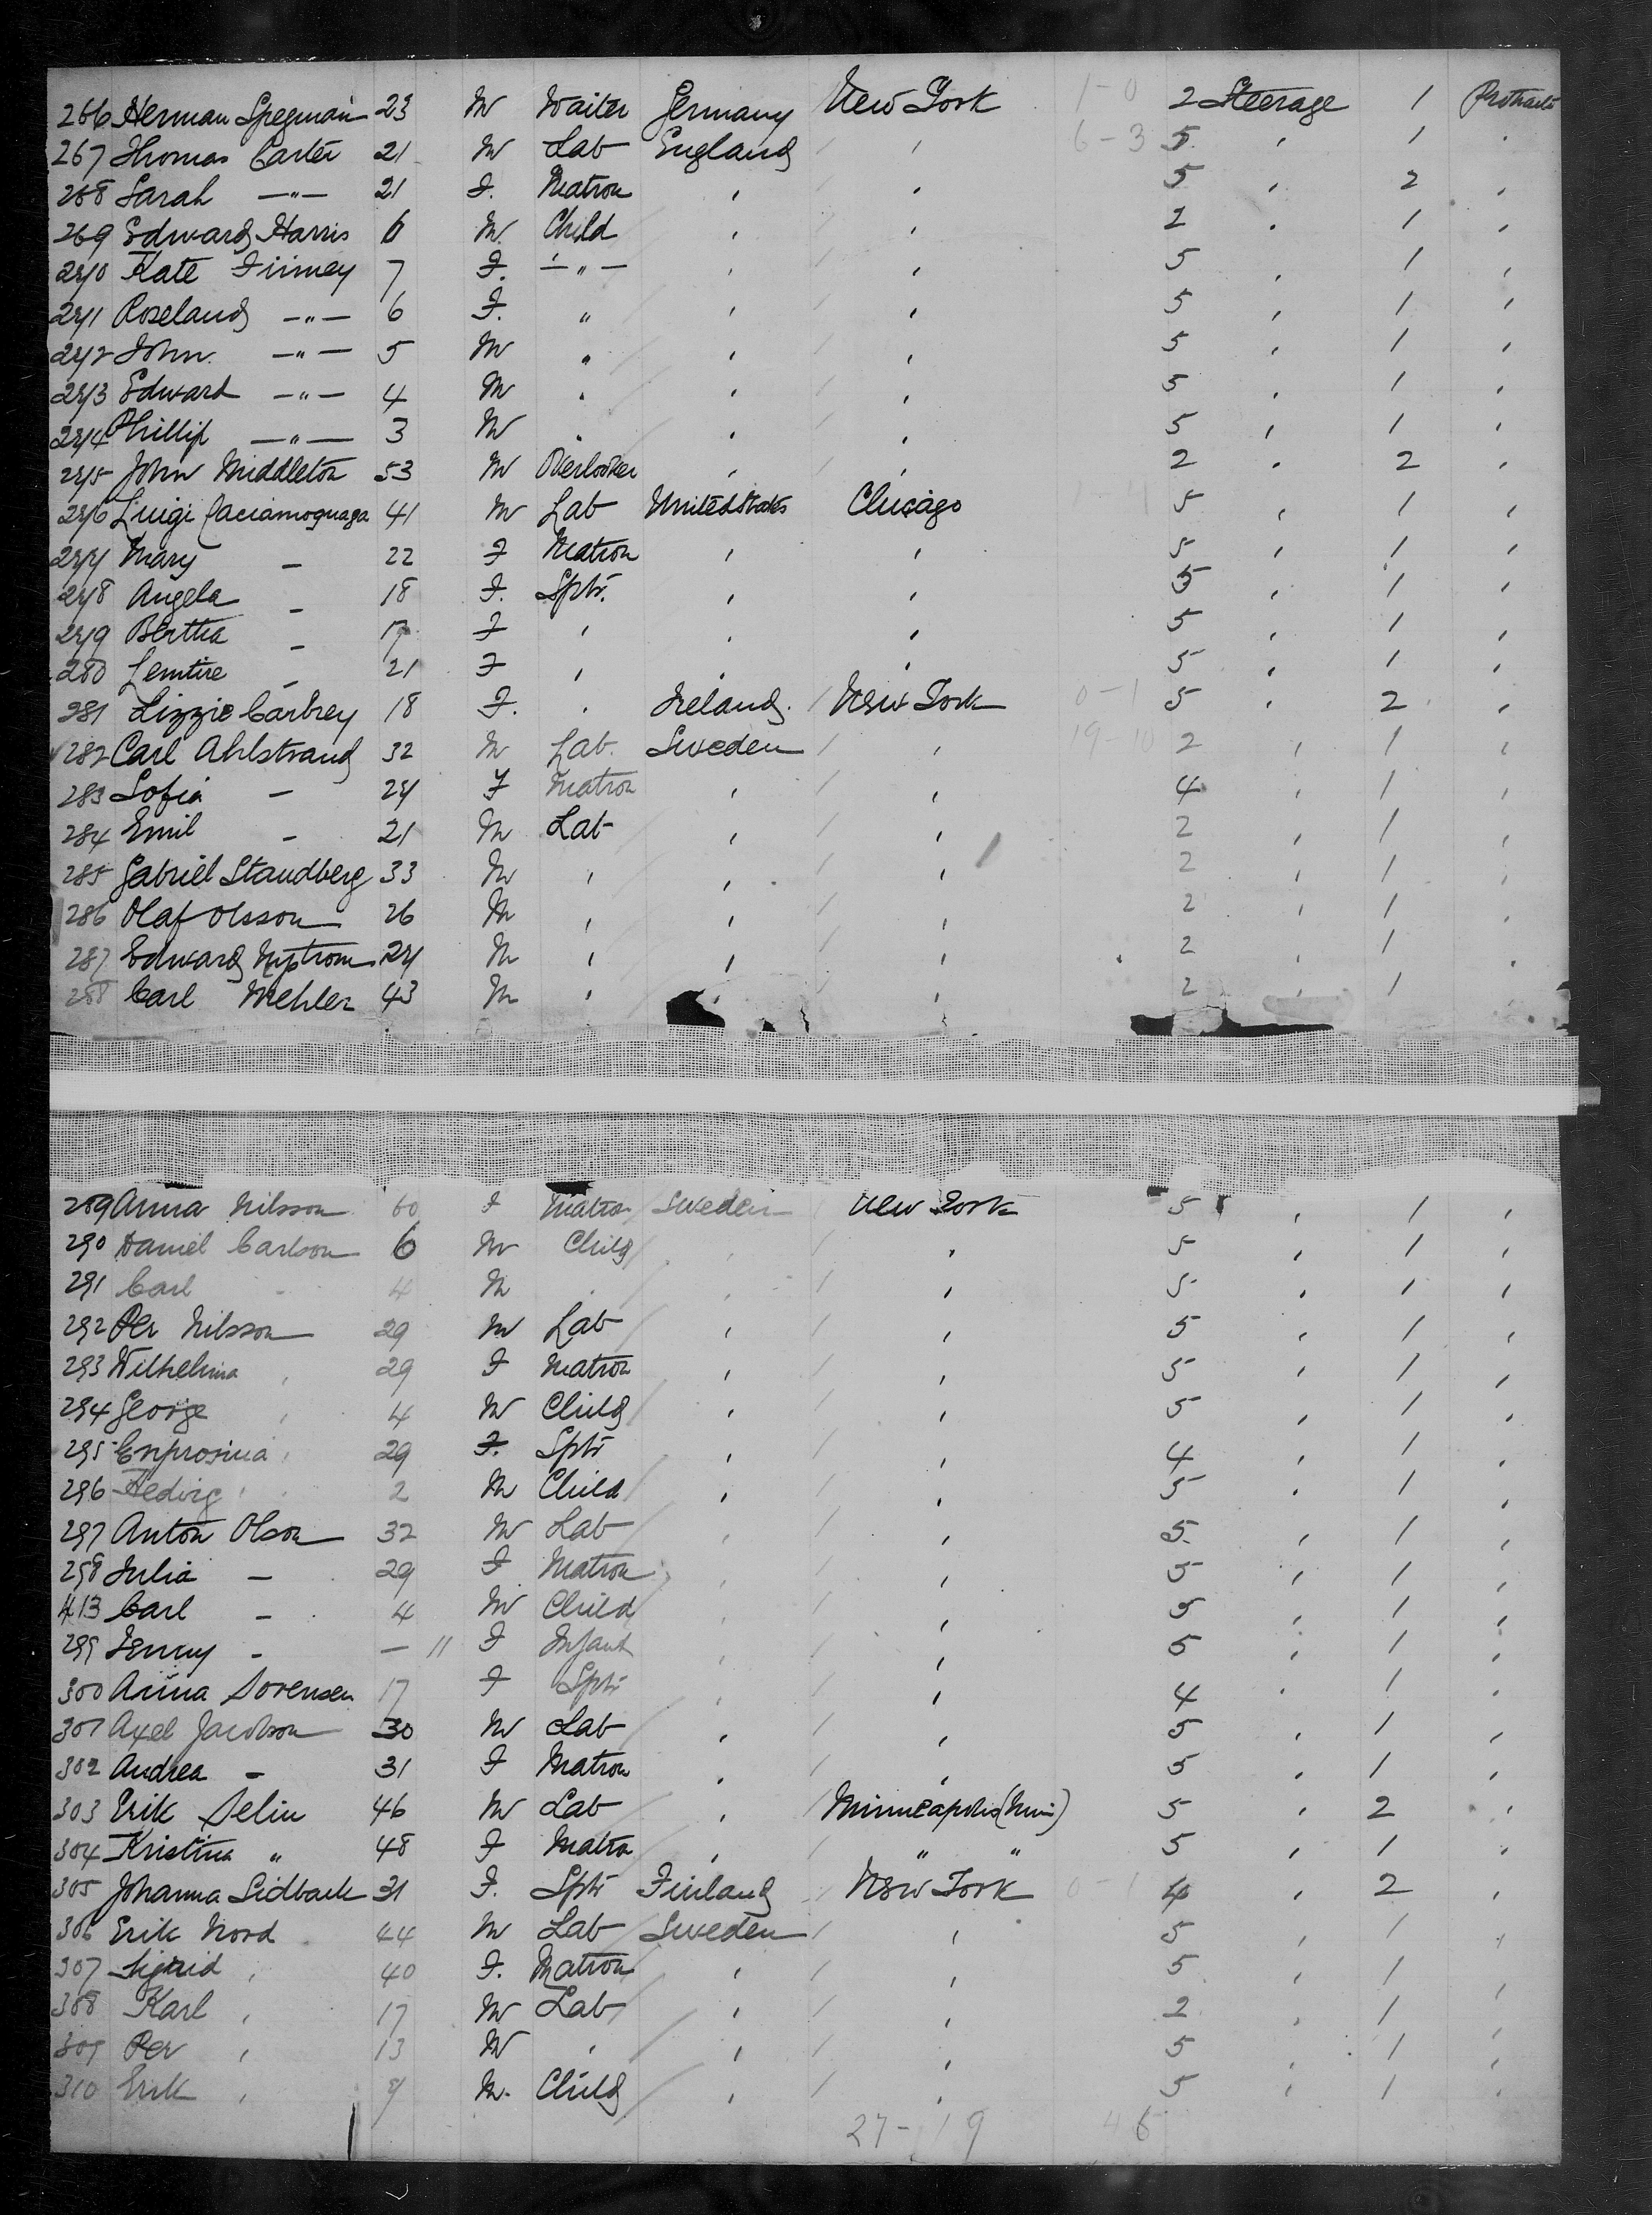 266 Herman Spegman 23 M Waiter Germany New York 1-0 2 Steerage 1
267 Thomas Carter 21 M Lab England " 6-3 5 " 1 "
268 Sarah —"— 21 F. Matron " " 5 " 2 "
269 Edward Harris 6 M. Child " " 2 " 1 "
270 Kate Finney 7 F. —"— " " 5 " 1 "
271 Roseland —"— 6 F. " " " 5 " 1 "
272 John —"— 5 M " " " 5 " 1 "
273 Edward —"— 4 M " " " 5 " 1 "
274 Phillip —"— 3 M " " " 5 " 1 "
275 John Middleton 53 M Overlooker " " 2 " 2 "
276 Luigi 41 M Lab United States Chicago 5 " 1 "
277 Mary — 22 F Matron " " 5 " 1 "
278 Angela — 18 F. Sptr. " " 5 " 1 "
279 Bertha — 17 F " " " 5 " 1 "
280 — 21 F " " " 5 " 1 "
281 Lizzie Carbrey 18 F. " Ireland. New York 0-1 5 " 2 "
282 Carl Ahlstrand 32 M Lab. Sweden " 19-10 2 " 1 "
283 Sofia — 27 F Matron " " 4 " 1 "
284 Emil — 21 M Lab " " 2 " 1 "
285 Gabriel Standberg 33 M " " " 2 " 1 "
286 Olaf Olsson 26 M " " " 2 " 1 "
287 Edward Nystrom 27 M " " " 2 " 1 "
288 Carl Mehler 43 M " " " 2 " 1
289 Anna Nilsson 60 F Matron Sweden New York 5 " 1 "
290 Daniel Carlson 6 M Child " " 5 " 1 "
291 Carl " 4 M " " " 5 " 1 "
292 Per Nilsson 29 M Lab " " 5 " 1 "
293 Wilhelmina " 29 F Matron " " 5 " 1 "
294 George " 4 M Child " " 5 " 1 "
295 " 29 F. Sptr " " 4 " 1 "
296 Hedvig " 2 M Child " " 5 " 1 "
297 Anton Olson 32 M Lab " " 5 " 1 "
298 Julia — 29 F Matron " " 5 " 1 "
413 Carl — 4 M Child " " 5 " 1 "
299 Jenny — — 11 F Infant " " 5 " 1 "
300 Anna Sorensen 17 F Sptr " " 4 " 1 "
301 Axel Jacobson 30 M Lab " " 5 " 1 "
302 Andrea — 31 F Matron " " 5 " 1 "
303 Erik Selin 46 M Lab " Minneapolis (Min) 5 " 2 "
304 Kristina " 48 F Matron " " " 5 " 1 "
305 Johanna Sidback 31 F. Sptr Finland New York 0-1 4 " 2 "
306 Erik Nord 44 M Lab Sweden " 5 " 1 "
307 Sigrid " 40 F. Matron " " 5 " 1 "
308 Karl " 17 M Lab " " 2 " 1 "
309 Per " 13 M " " " 5 " 1 "
310 Erik " 7 M. Child " " 5 " 1 "
27-19 46